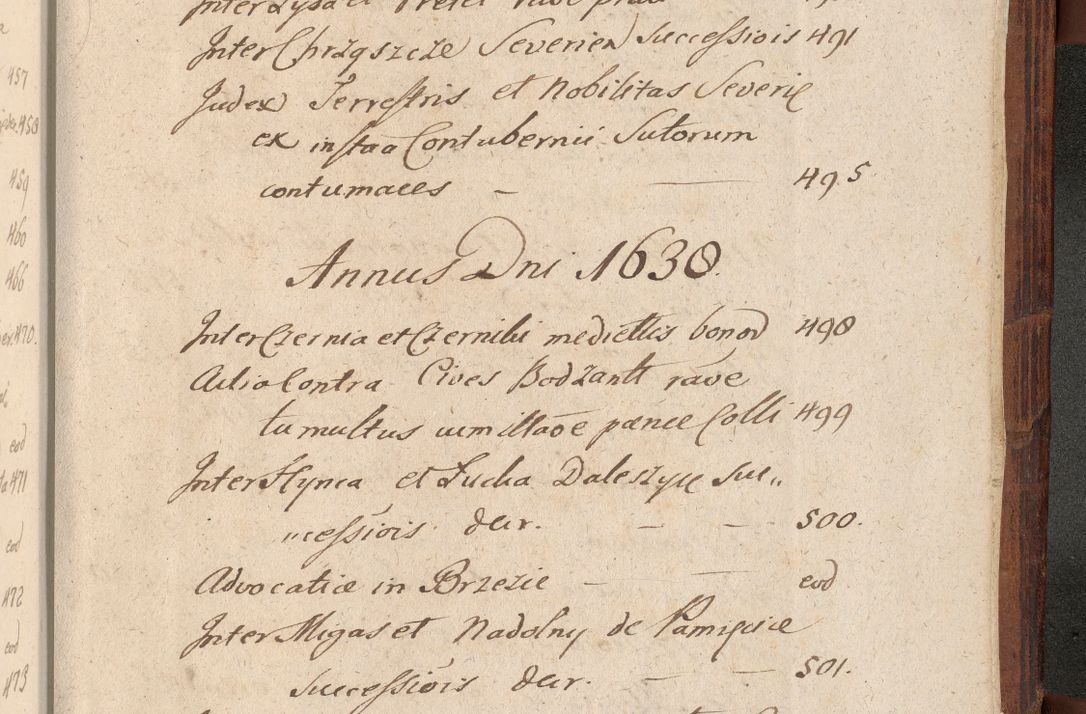 Inter Chrząszcze Severien Successiois 491
Judex Terrestris et Nobilitas Severię
ex instaa Contubernii Sutorum
contumaces - — 495
Annus Dni 1638.
Inter Czernia et Czernihi mediettis bonor 498
Actio Contra Cives Bodzantt raõe
tumultus cum illaõe pænæ Colli 499
Inter Hynca et Lucha Daleszyce Suc„
„cessiois decr. — — 500.
Advocatiæ in Brzezie — — eod
Inter Migas et Nadolny de Pamięcice
Successiois decr. — — 501.
457
458
459
460
466
470.
eod
471
eod
472
eod
473